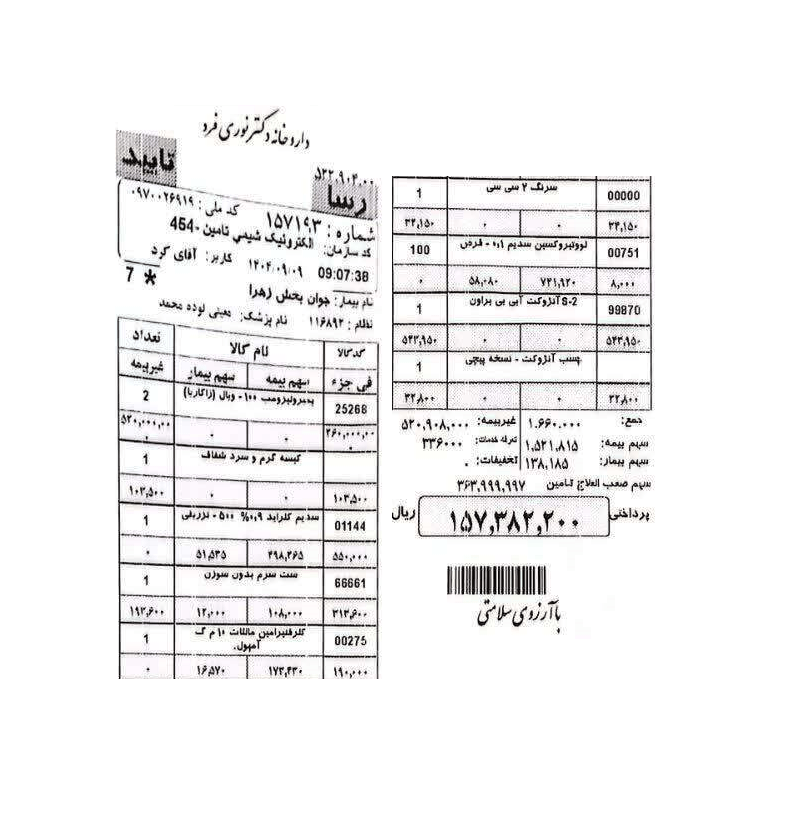 داروخانه دکتر نوری فرد
تایید
۵۲۲,۹۰۴,۰۰
رسا
شماره : ۱۵۷۱۹۳ کد ملی : ۰۹۷۰۰۲۶۹۱۹
کد سازمان: الکترونیک شیمی تامین -454
09:07:38 ۱۴۰۴/۰۹/۰۹ کاربر: آقای کرد
نام بیمار: جوان بخش زهرا * 7
نظام : ۱۱۶۸۹۲ نام پزشک: معینی لوده محمد
کد کالا نام کالا تعداد
فی جزء سهم بیمه سهم بیمار غیربیمه
25268 پمبرولیزومب ۱۰۰ - ویال (زاکاریا) 2
۲۶۰,۰۰۰,۰۰۰ ۰ ۰ ۵۲۰,۰۰۰,۰۰۰
کیسه گرم و سرد شفاف 1
۱۰۳,۵۰۰ ۰ ۰ ۱۰۳,۵۰۰
01144 سدیم کلراید ۰,۹% ۵۰۰ - تزریقی 1
۵۵۰,۰۰۰ ۴۹۸,۴۶۵ ۵۱,۵۳۵ ۰
66661 ست سرم بدون سوزن 1
۳۱۳,۶۰۰ ۱۰۸,۰۰۰ ۱۲,۰۰۰ ۱۹۳,۶۰۰
00275 کلرفنیرامین مالئات ۱۰ م گ آمپول. 1
۱۹۰,۰۰۰ ۱۷۳,۴۳۰ ۱۶,۵۷۰ ۰
00000 سرنگ ۲ سی سی 1
۳۴,۱۵۰ ۰ ۰ ۳۴,۱۵۰
00751 لووتیروکسین سدیم ۰,۱ - قرص 100
۸,۰۰۰ ۷۴۱,۹۲۰ ۵۸,۰۸۰ ۰
99870 S-2 آنژوکت آبی بی براون 1
۵۴۳,۹۵۰ ۰ ۰ ۵۴۳,۹۵۰
چسب آنژوکت - نسخه پیچی 1
۳۲,۸۰۰ ۰ ۰ ۳۲,۸۰۰
جمع: ۱,۶۶۰,۰۰۰ غیربیمه: ۵۲۰,۹۰۸,۰۰۰
سهم بیمه: ۱,۵۲۱,۸۱۵ تعرفه خدمات: ۳۳۶۰۰۰
سهم بیمار: ۱۳۸,۱۸۵ تخفیفات: ۰
سهم صعب العلاج تامین ۳۶۳,۹۹۹,۹۹۷
پرداختی ۱۵۷,۳۸۲,۲۰۰ ریال
با آرزوی سلامتی